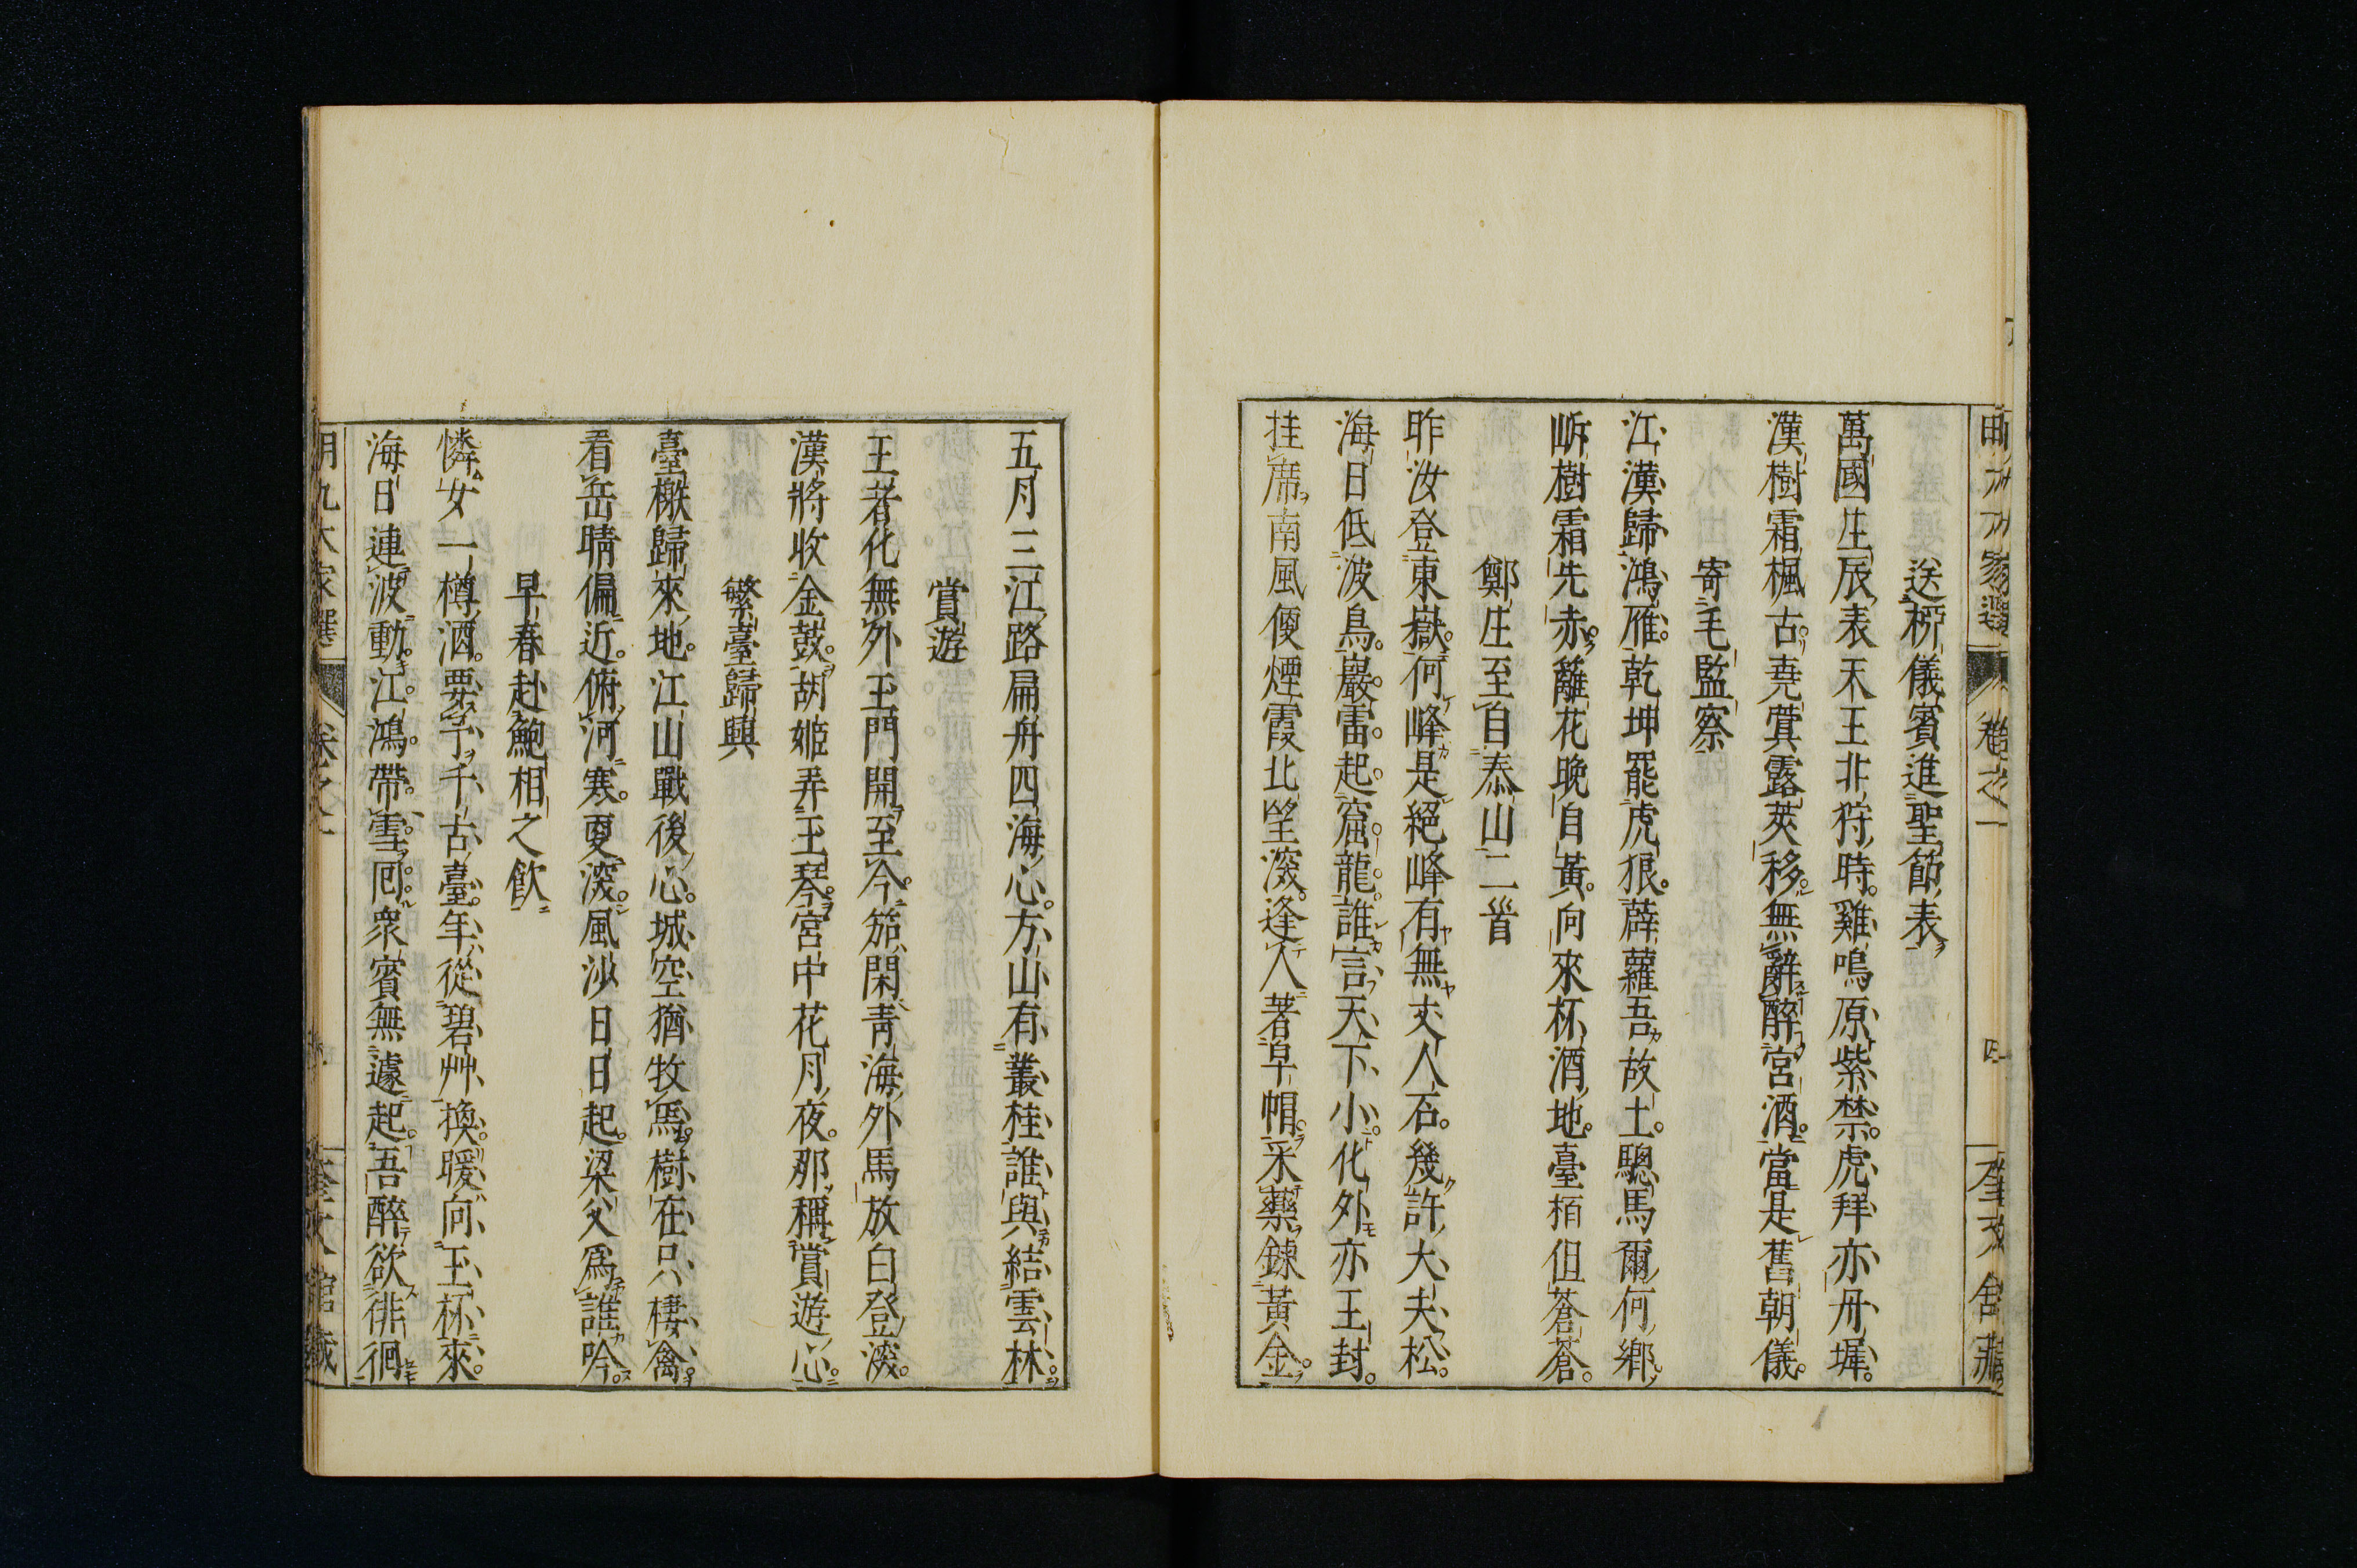 送桺儀賓進聖節表
萬國生辰表天王非狩時雞鳴原紫禁虎拜亦丹墀
漢樹霜楓古堯蓂露莢移無辭醉宮酒當是舊朝儀
寄毛監察
江漢歸鴻雁乾坤罷虎狼薜蘿吾故土驄馬爾何鄉
岸樹霜先赤籬花晚自黃向來杯酒地臺栢但蒼蒼
鄭庄至自泰山二首
昨汝登東嶽何峰是絕峰有無丈人石幾許大夫松
海日低波鳥巖雷起窟龍誰言天下小化外亦王封
挂席南風便煙霞北望深逢人著皁帽采藥鍊黃金
五月三江路扁舟四海心方山有叢桂誰與結雲林
賞遊
王者化無外玉門開至今笳閑青海外馬放白登深
漢將收金鼓胡姬弄玉琴宮中花月夜那稱賞遊心
繁臺歸興
臺檄歸來地江山戰後心城空猶牧馬樹在只棲禽
看岳晴偏近俯河寒更深風沙日日起梁父爲誰吟
早春赴鮑相之飲
憐女一樽酒要予千古臺年從碧艸換暖向玉杯來
海日連波動江鴻帶雪回衆賓無遽起吾醉欲徘徊
明九大家選 卷之一